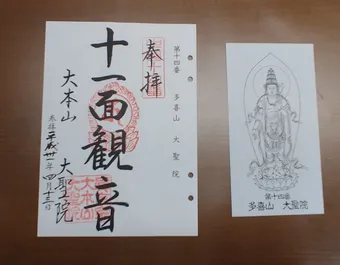 第十四番 多喜山 大聖院
奉拝
十一面観音
大本山 大聖院
参拝 平成卅一年四月十三日
第十四番
多喜山 大聖院